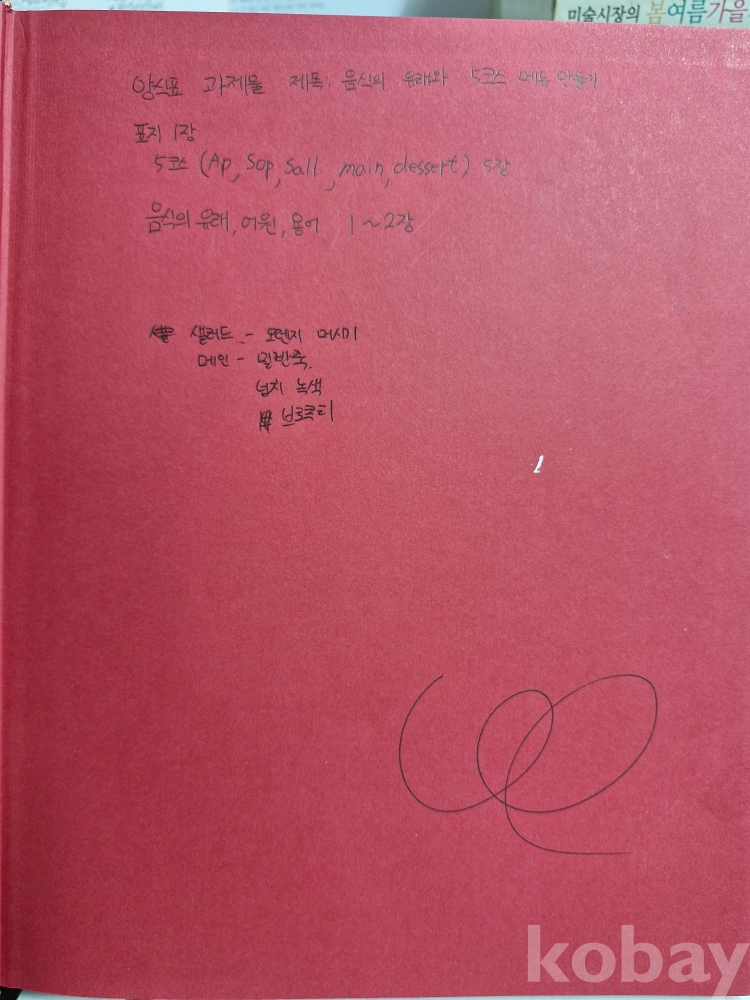 미술시장의 봄여름가을
양식표 과제물 제목: 음식의 유래와 5코스 메뉴 만들기
표지 1장
5코스 (Ap, Sop, Sall, main, dessert) 5장
음식의 유래, 어원, 용어 1~2장
샐러드 - 오렌지 머시기
메인 - 밀반죽.
넙치 녹색
브로콜리
kobay